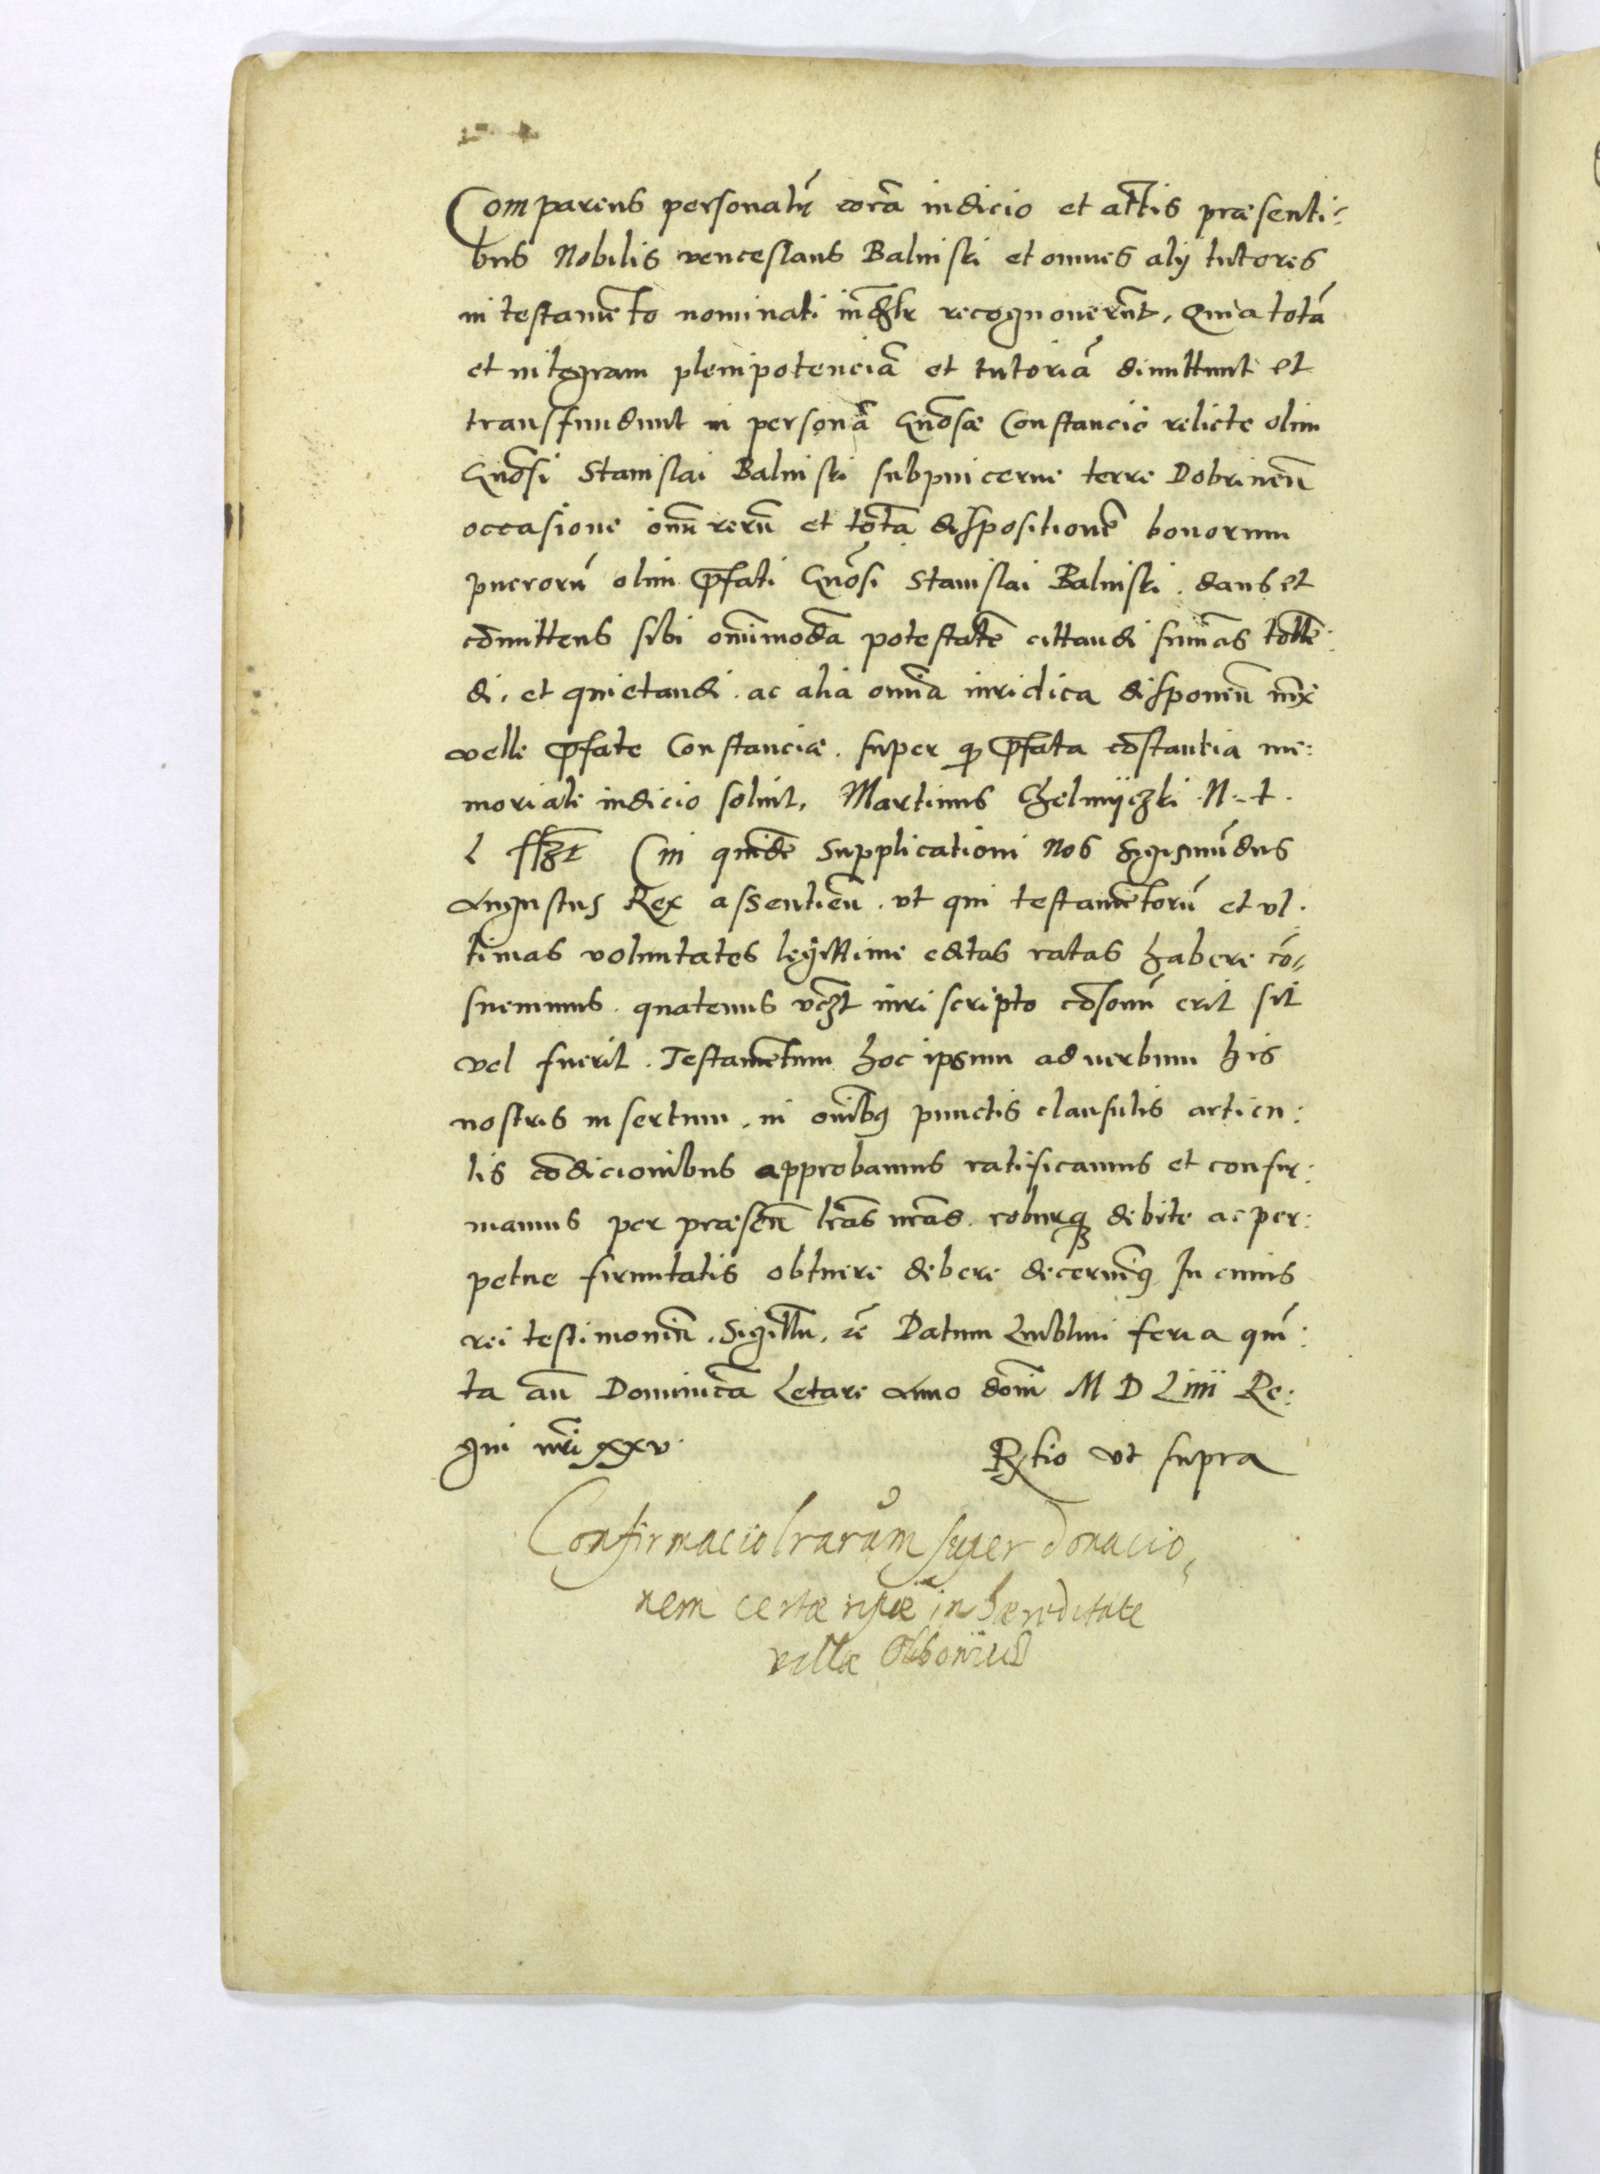 Comparens personalr̃ corã iudicio et actis præsenti-
bus Nobilis venceslaus Balinski et omnes alij tutores
in testamẽto nominati recognouerũt, Quia totã
et integram plenipotenciã et tutoriã dimittunt et
transfundunt in personã Gñosæ Constancie relicte olim
Gñosi Stanislai Balinski subpincerne terre Dobrineñ
occasione oñiũ rerũ et totã dispositionẽ bonorum
puerorũ olim p̃fati Gñosi Stanislai Balinski. dans et
cõmittens sibi oñimodã potestatẽ cittandi sum̃as tollẽ:
di. et quietandi. ac alia omnia iuridica disponeñ iux̃
velle p̃fate Constanciæ. super q p̃fata cõstantia me:
moriale iudicio soluit, Martinus Chelmijczki N. t.
L sszt Cui quidẽ supplicationi Nos Sigismũdus
Augustus Rex assentieñ. vt qui testamẽtorũ et vl.
timas voluntates legittime editas ratas habere cõ-
sueuimus. quatenus vczt iuri scripto cõsonũ erit sit
vel fuerit. Testamẽtum hoc ipsum ad verbum his
nostris insertum, in om̃ibus punctis clausulis articu:
lis cõdicionibus approbamus ratificamus et confir:
mamus per præseñ lr̃as nr̃as. roburq3 debite ac per:
petue firmitatis obtinere debere decernim9 In cuius
rei testimoniũ. Sigillũ. rẽ Datum Lublini feria quĩ:
ta añ Dominicã Letare Anno dom̃ M D Liiii Re:
gni nr̃i xxv.
Rtio vt supra
Confirmacio lrarum super donacio-
nem certæ ripæ in hæreditate
villæ